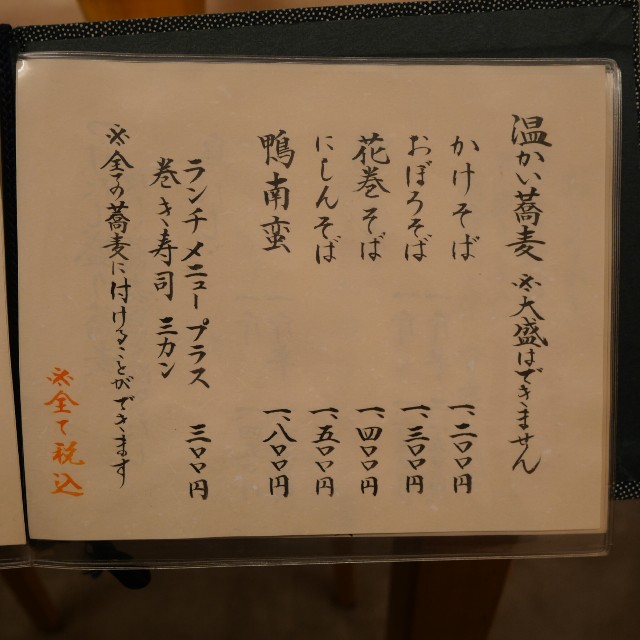 温かい蕎麦 ※大盛はできません
かけそば 一、二〇〇円
おぼろそば 一、三〇〇円
花巻そば 一、四〇〇円
にしんそば 一、五〇〇円
鴨南蛮 一、八〇〇円
ランチメニュープラス 三〇〇円
巻き寿司 三カン
※全ての蕎麦に付けることができます
※全て税込